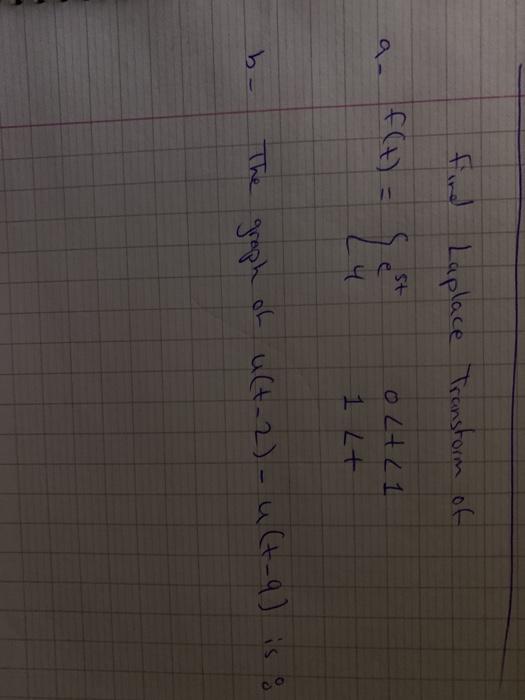 Find Laplace Transform of
a- f(t) = { e^5t 0<t<1
4 1<t
b- The graph of u(t-2) - u(t-9) is: